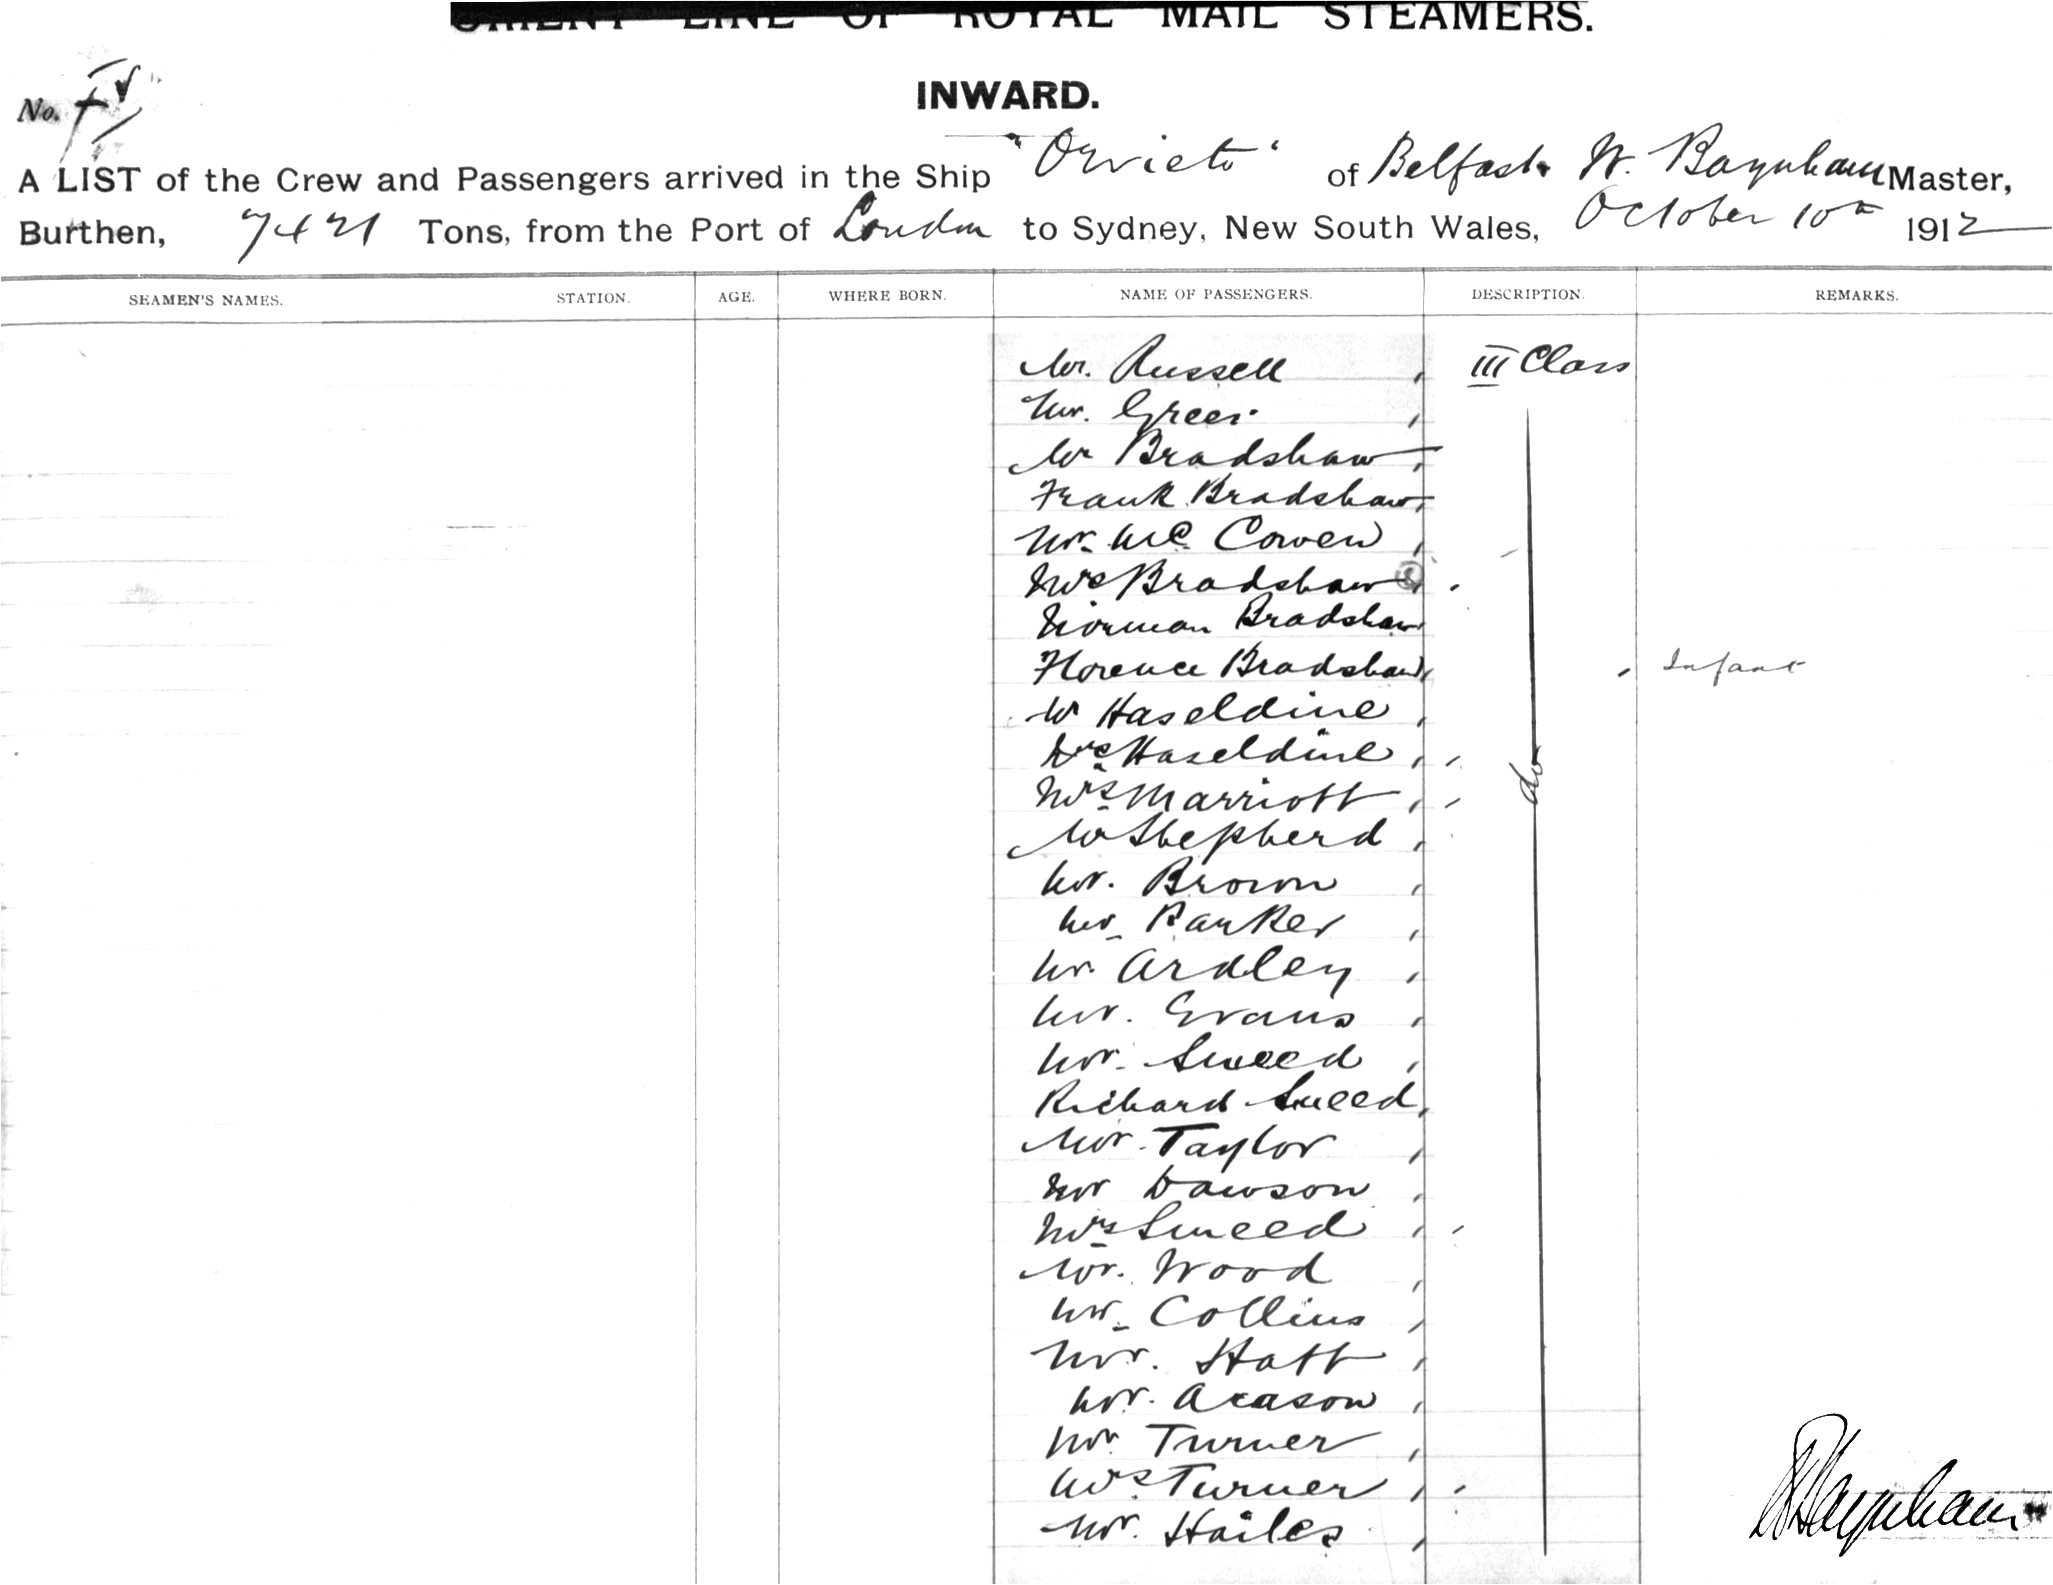 ORIENT LINE OF ROYAL MAIL STEAMERS.
INWARD.
No.
A LIST of the Crew and Passengers arrived in the Ship "Orvieto" of Belfast W. Baynham Master,
Burthen, 7421 Tons, from the Port of London to Sydney, New South Wales, October 10th 1912
SEAMEN'S NAMES. STATION. AGE. WHERE BORN. NAME OF PASSENGERS. DESCRIPTION. REMARKS.
Mr. Russell III Class
Mr. Green
Mr Bradshaw
Frank Bradshaw
Mr. Mc Cowen
Mrs Bradshaw
Norman Bradshaw
Florence Bradshaw Infant
Mr Haseldine
Mrs Haseldine
Mrs Marriott do
Mr Shepherd
Mr. Brown
Mr Barker
Mr. Ardley
Mr. Evans
Mr. Sneed
Richard Sneed
Mr. Taylor
Mr Dawson
Mrs Sneed
Mr. Wood
Mr Collins
Mr. Statt
Mr. Acason
Mr. Turner
Mrs. Turner
Mr. Hailes
W Baynham